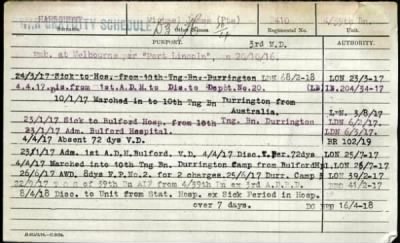 Michael James (Pte) 2410 4/39th Bn.
SURNAME. Regimental No.
PURPORT. AUTHORITY.
3rd M.D.
Emb. at Melbourne per "Port Lincoln", on 20/10/16.
24/3/17 Sick to Hos. from 10th Tng. Bn. Durrington LDN 68/2-18 LON 23/3-17
4.4.17 Dis. from 1st A.D.H. to Dis. to Depôt No. 20. 204/34-17
10/1/17 Marched in to 10th Tng Bn Durrington from
Australia.
23/1/17 Sick to Bulford Hosp. from 10th Tng. Bn. Durrington LDN 6/2/17
23/1/17 Adm. Bulford Hospital. LDN 6/2/17.
4/4/17 Absent 72 dys V.D. BR 102/19
23/1/17 Adm. 1st A.D.H. Bulford. V.D. 4/4/17 Disc. V. Per. 72dys LON 25/7-17
4/4/17 Marched into 10th Tng Bn Durrington Camp from Bulford LON 25/7-17
26/6/17 AWD. 8dys F.P. No.2. for 2 charges. 25/6/17 Durr. Camp LON 39/2-17
of 39th Bn AIF from 4/39th Bn ex 3rd 41/2-17
8/4/18 Disc to Unit from Stat. Hosp. ex Sick Period in Hosp. 16/4-18
over 7 days.